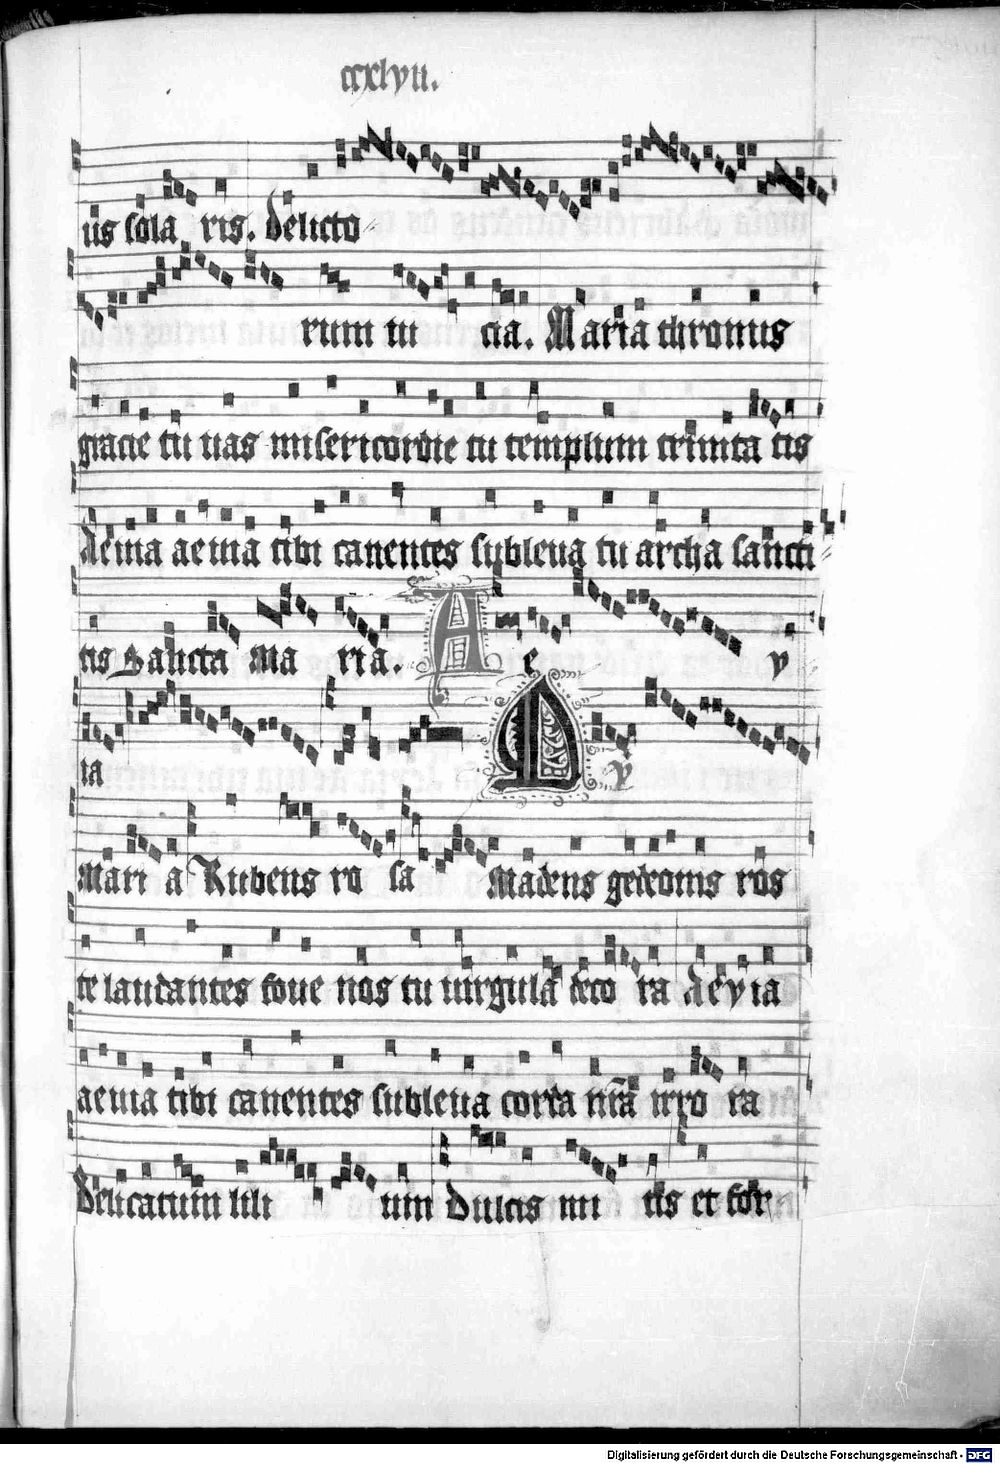 ccxlvii.
iis sola ris. delicto
rum tu cia. Maria thronus
gracie tu uas misericordie tu templum trinita tis
Aeuia aeuia tibi canentes subleua tu archa sancti
tis Sancta Ma ria. A e y
ia O y
Mari a Rubens ro sa Madens gedeonis ros
te laudantes foue nos tu uirgula deco ra Aeyia
aeuia tibi canentes subleua corda nr̄a irro ra
Delicatum lili um Dulcis mi tis et for
Digitalisierung gefördert durch die Deutsche Forschungsgemeinschaft - DFG